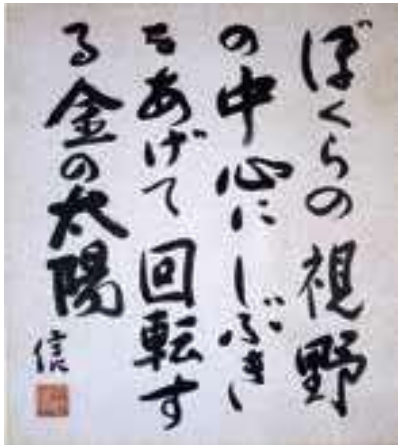 ぼくらの視野
の中心にしぶき
をあげて回転す
る金の太陽
信